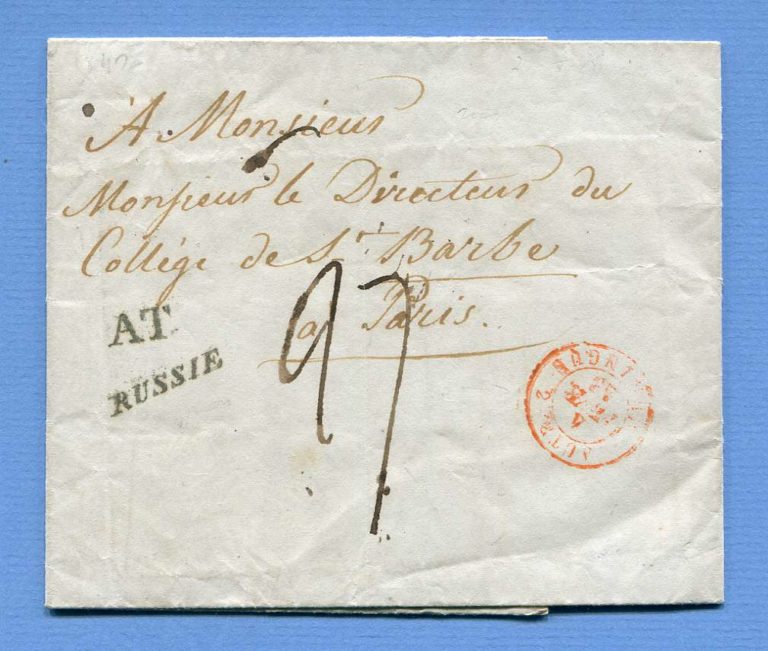 A Monsieur
Monsieur le Directeur du
Collége de St Barbe
a Paris.
AT.
RUSSIE
97
2